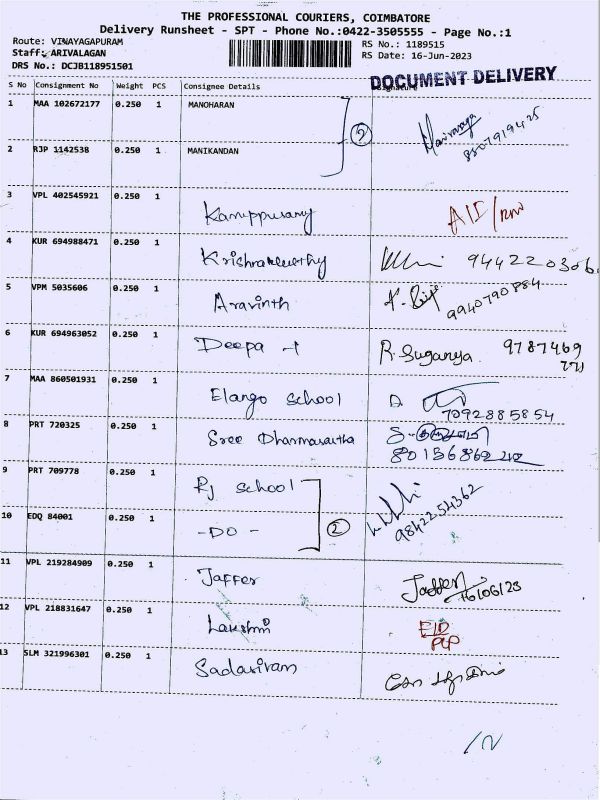 THE PROFESSIONAL COURIERS, COIMBATORE
Delivery Runsheet - SPT - Phone No.:0422-3505555 - Page No.:1
Route: VINAYAGAPURAM
RS No.: 1189515
Staff: ARIVALAGAN
RS Date: 16-Jun-2023
DRS No.: DCJB118951501
DOCUMENT DELIVERY
S No Consignment No Weight PCS Consignee Details Signature
1 MAA 102672177 0.250 1 MANOHARAN
2 RJP 1142538 0.250 1 MANIKANDAN
2
3 VPL 402545921 0.250 1 Karuppusamy
4 KUR 694988471 0.250 1 Krishnamurthy 944220306.
5 VPM 5035606 0.250 1 Aravinth
6 KUR 694963052 0.250 1 Deepa - R. Suganya. 9787469
771
7 MAA 860501931 0.250 1 Elango school
7092885854
8 PRT 720325 0.250 1 Sree
9 PRT 709778 0.250 1 Rj school
9842254362
10 EDQ 84001 0.250 1 -DO- 2
11 VPL 219284909 0.250 1 Jaffer Jaffer 16/06/23
12 VPL 218831647 0.250 1 Lakshmi
13 SLM 321996301 0.250 1 Sadasivam